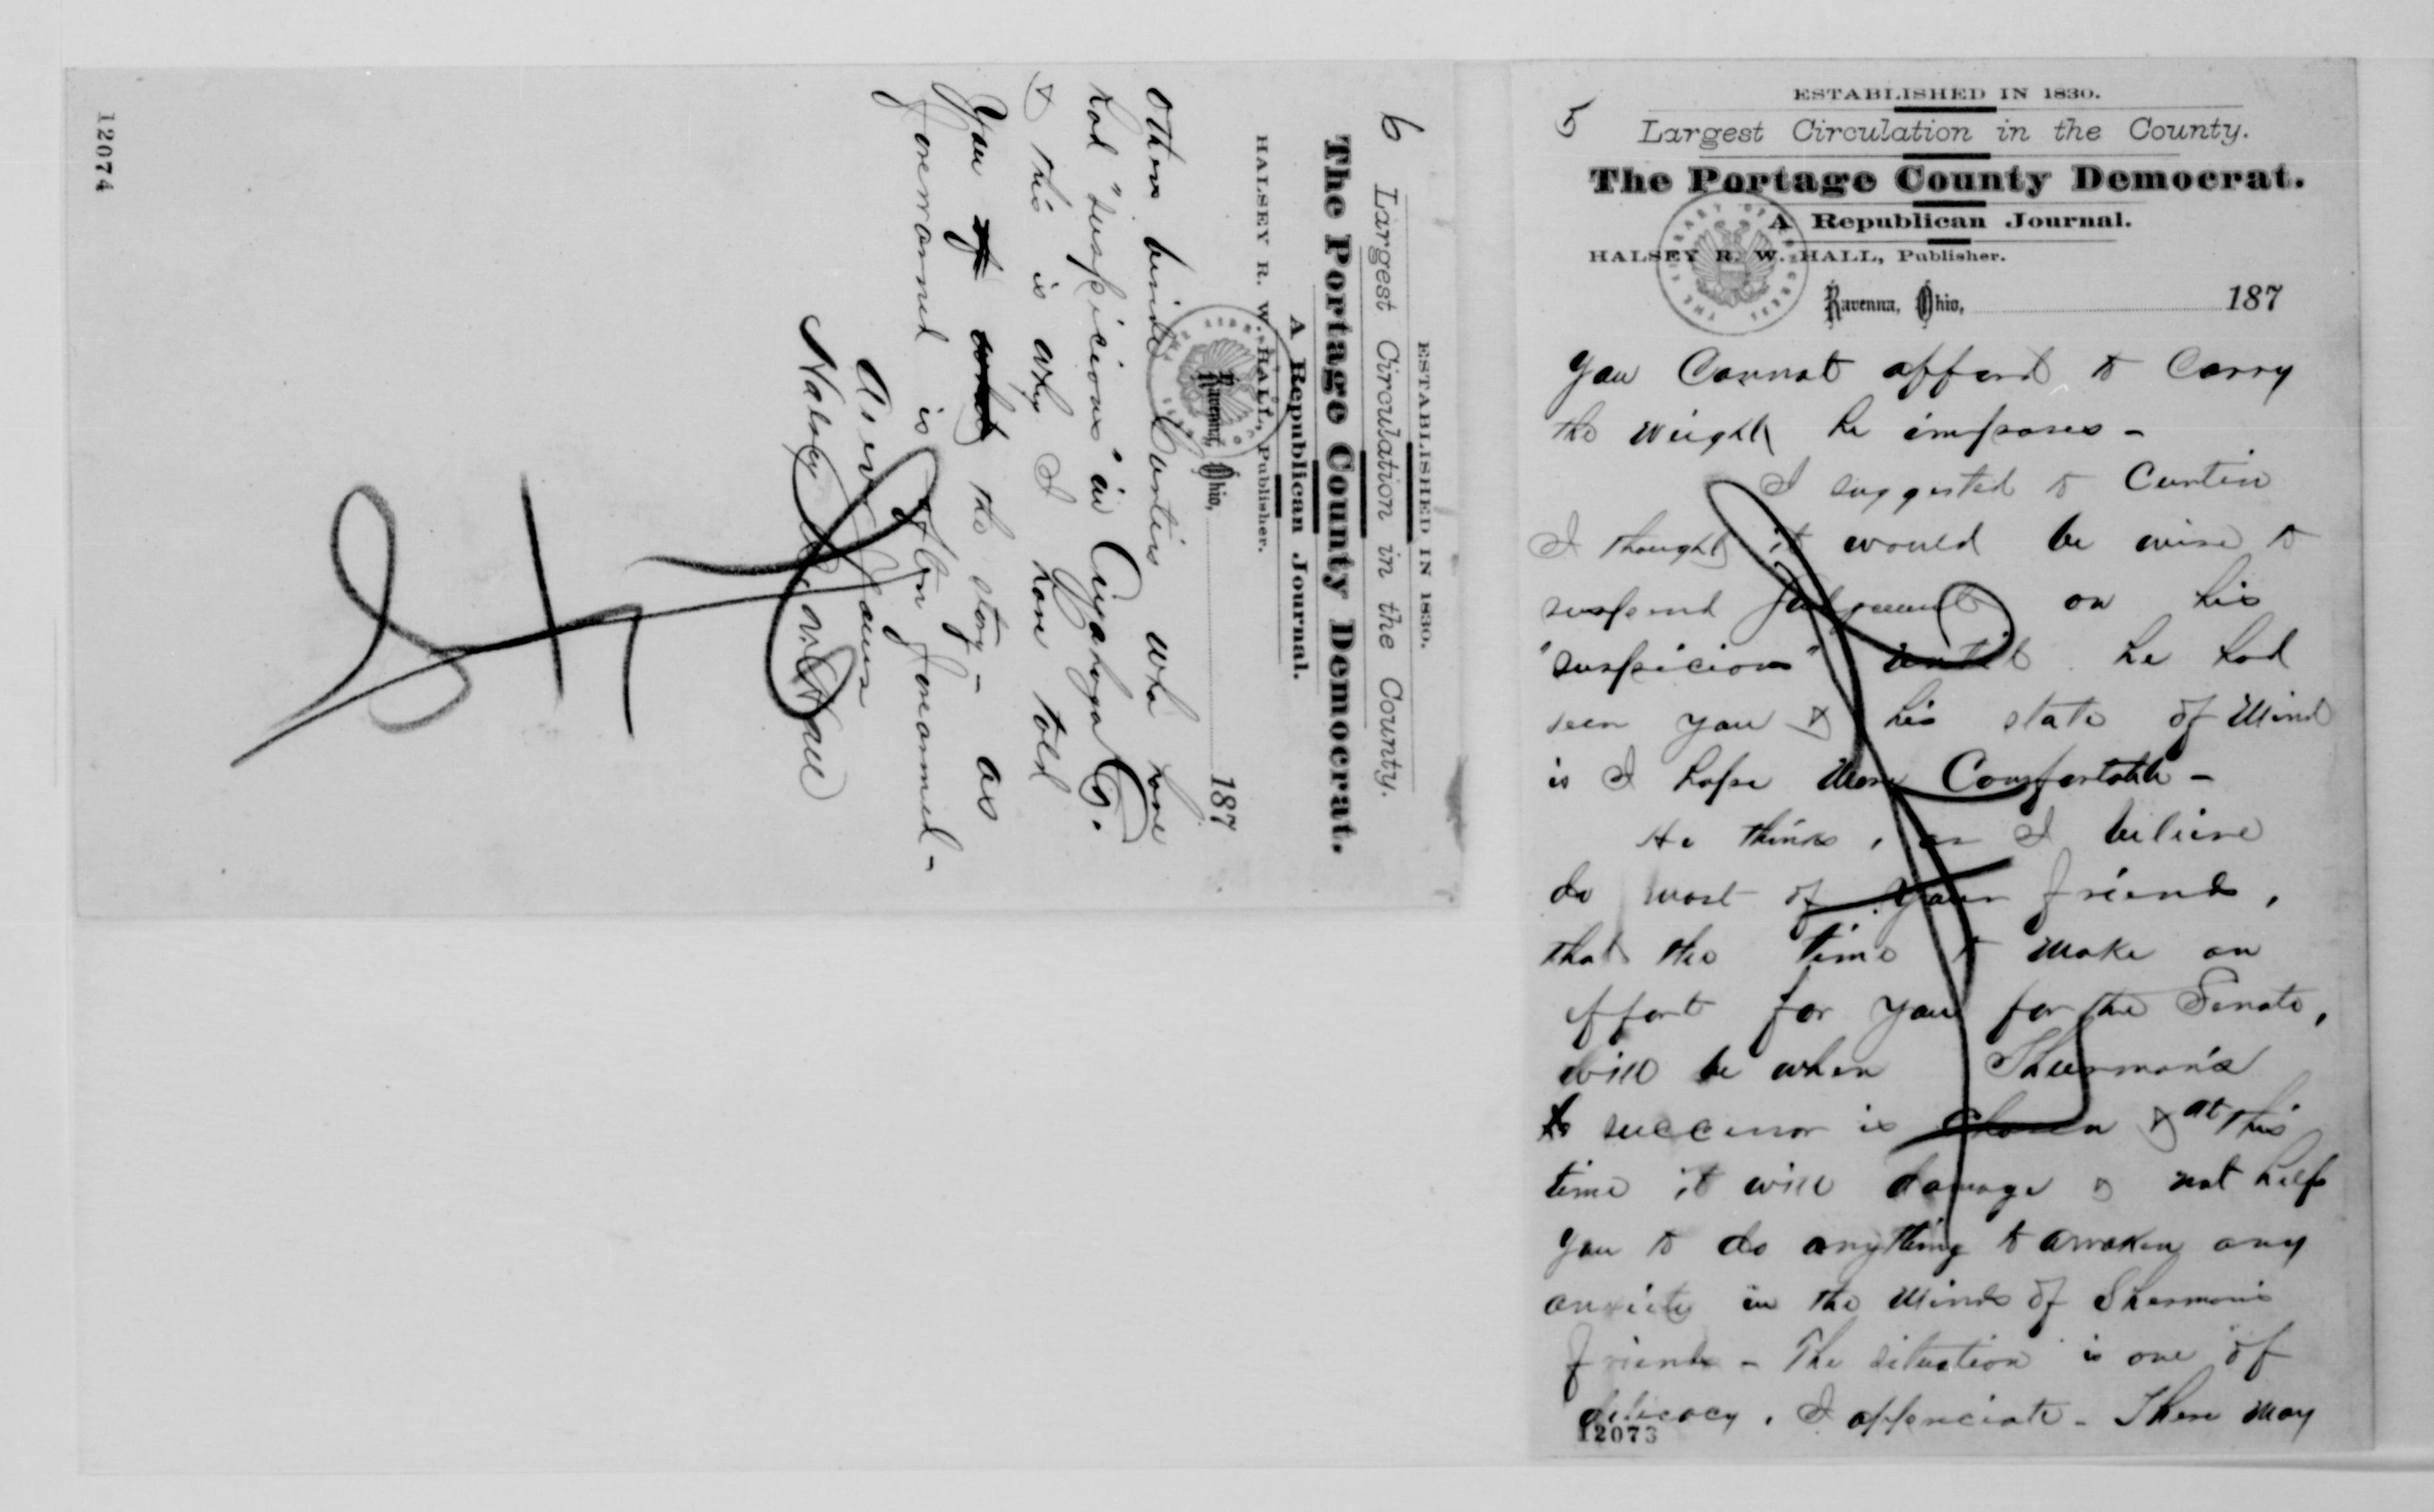 5
ESTABLISHED IN 1830.
Largest Circulation in the County.
The Portage County Democrat.
A Republican Journal.
HALSEY R. W. HALL, Publisher.
Ravenna, Ohio, 187
You Cannot afford to Carry
the weight he imposes -
I suggested to Curtin
I thought it would be wise to
suspend Judgement on his
"suspicions" until he had
seen you & his state of Mind
is I hope More Comfortable -
He thinks, as I believe
do most of your friends,
that the time to make an
effort for you for the Senate,
will be when Thurman's
successor is chosen & at this
time it will damage & not help
you to do anything to awaken any
anxiety in the Minds of Sherman's
friends - The situation is one of
delicacy, I appreciate - There may
12073
6
ESTABLISHED IN 1830.
Largest Circulation in the County.
The Portage County Democrat.
A Republican Journal.
HALSEY R. W. HALL, Publisher.
Ravenna, Ohio, 187
others beside Curtin who have
had "suspicions" in Cuyahoga Co.
& this is why I have told
you the story - as
forewarned is often forearmed -
As ever Yours
Halsey R W Hall
12074